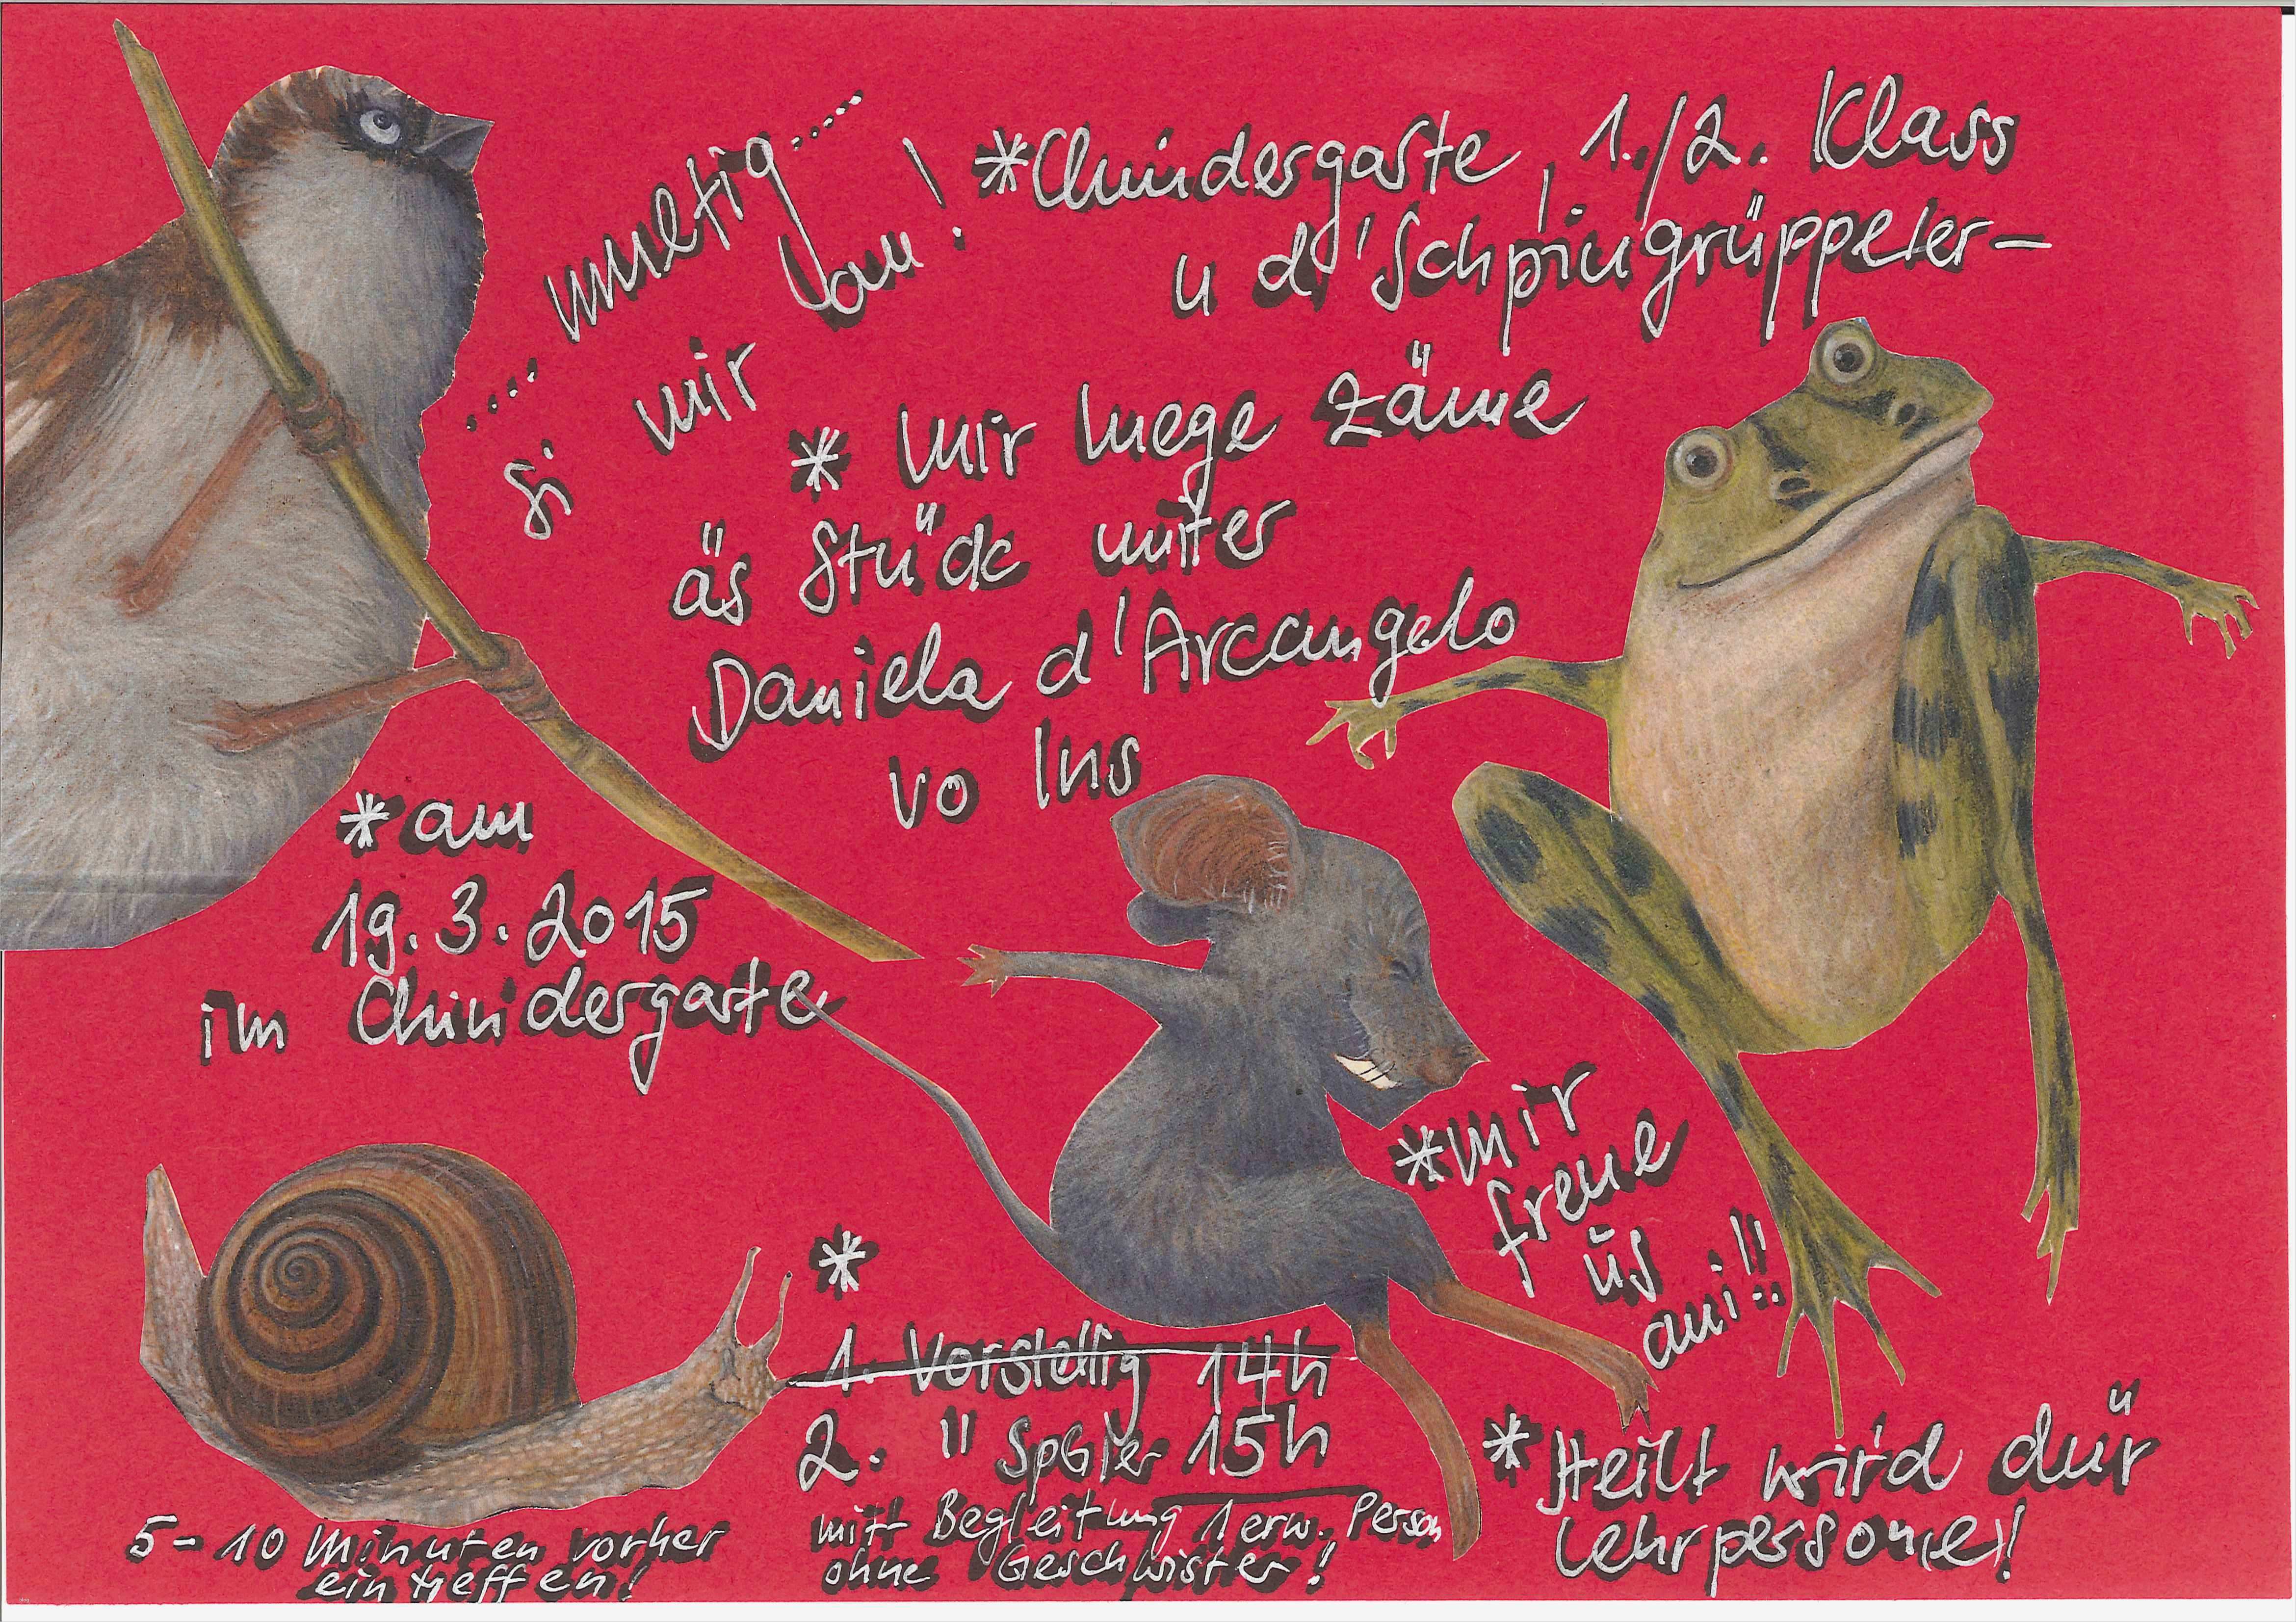 .... muetig ....
si mir
*Chindergarte, 1./2. Klass
u d'Schpiugrüppeler-
* Mir luege zäme
äs Stück miter
Daniela d'Arcangelo
vo Ins
*am
19.3.2015
im Chindergarte
*mir
freue
üs
aui!!
*
1. Vorstellig 14h
2. " Später 15h
mit Begleitung 1 erw. Person
ohne Geschwister!
5-10 Minuten vorher
eintreffen!
*Iteilt wird dür
Lehrperson(e)!